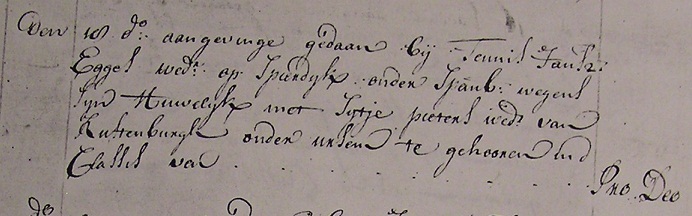 Den 18 do: aangevinge gedaan bij Teunis Jansz:
Eggel wedr: op Spierdijk onder Spanb: wegens
sijn Huwelijk met Sijtje pieters wedr: van
Ruttenburgh onder ursem te gehooren in d
Classis van . . . . . . . . . .
Pro Deo
do